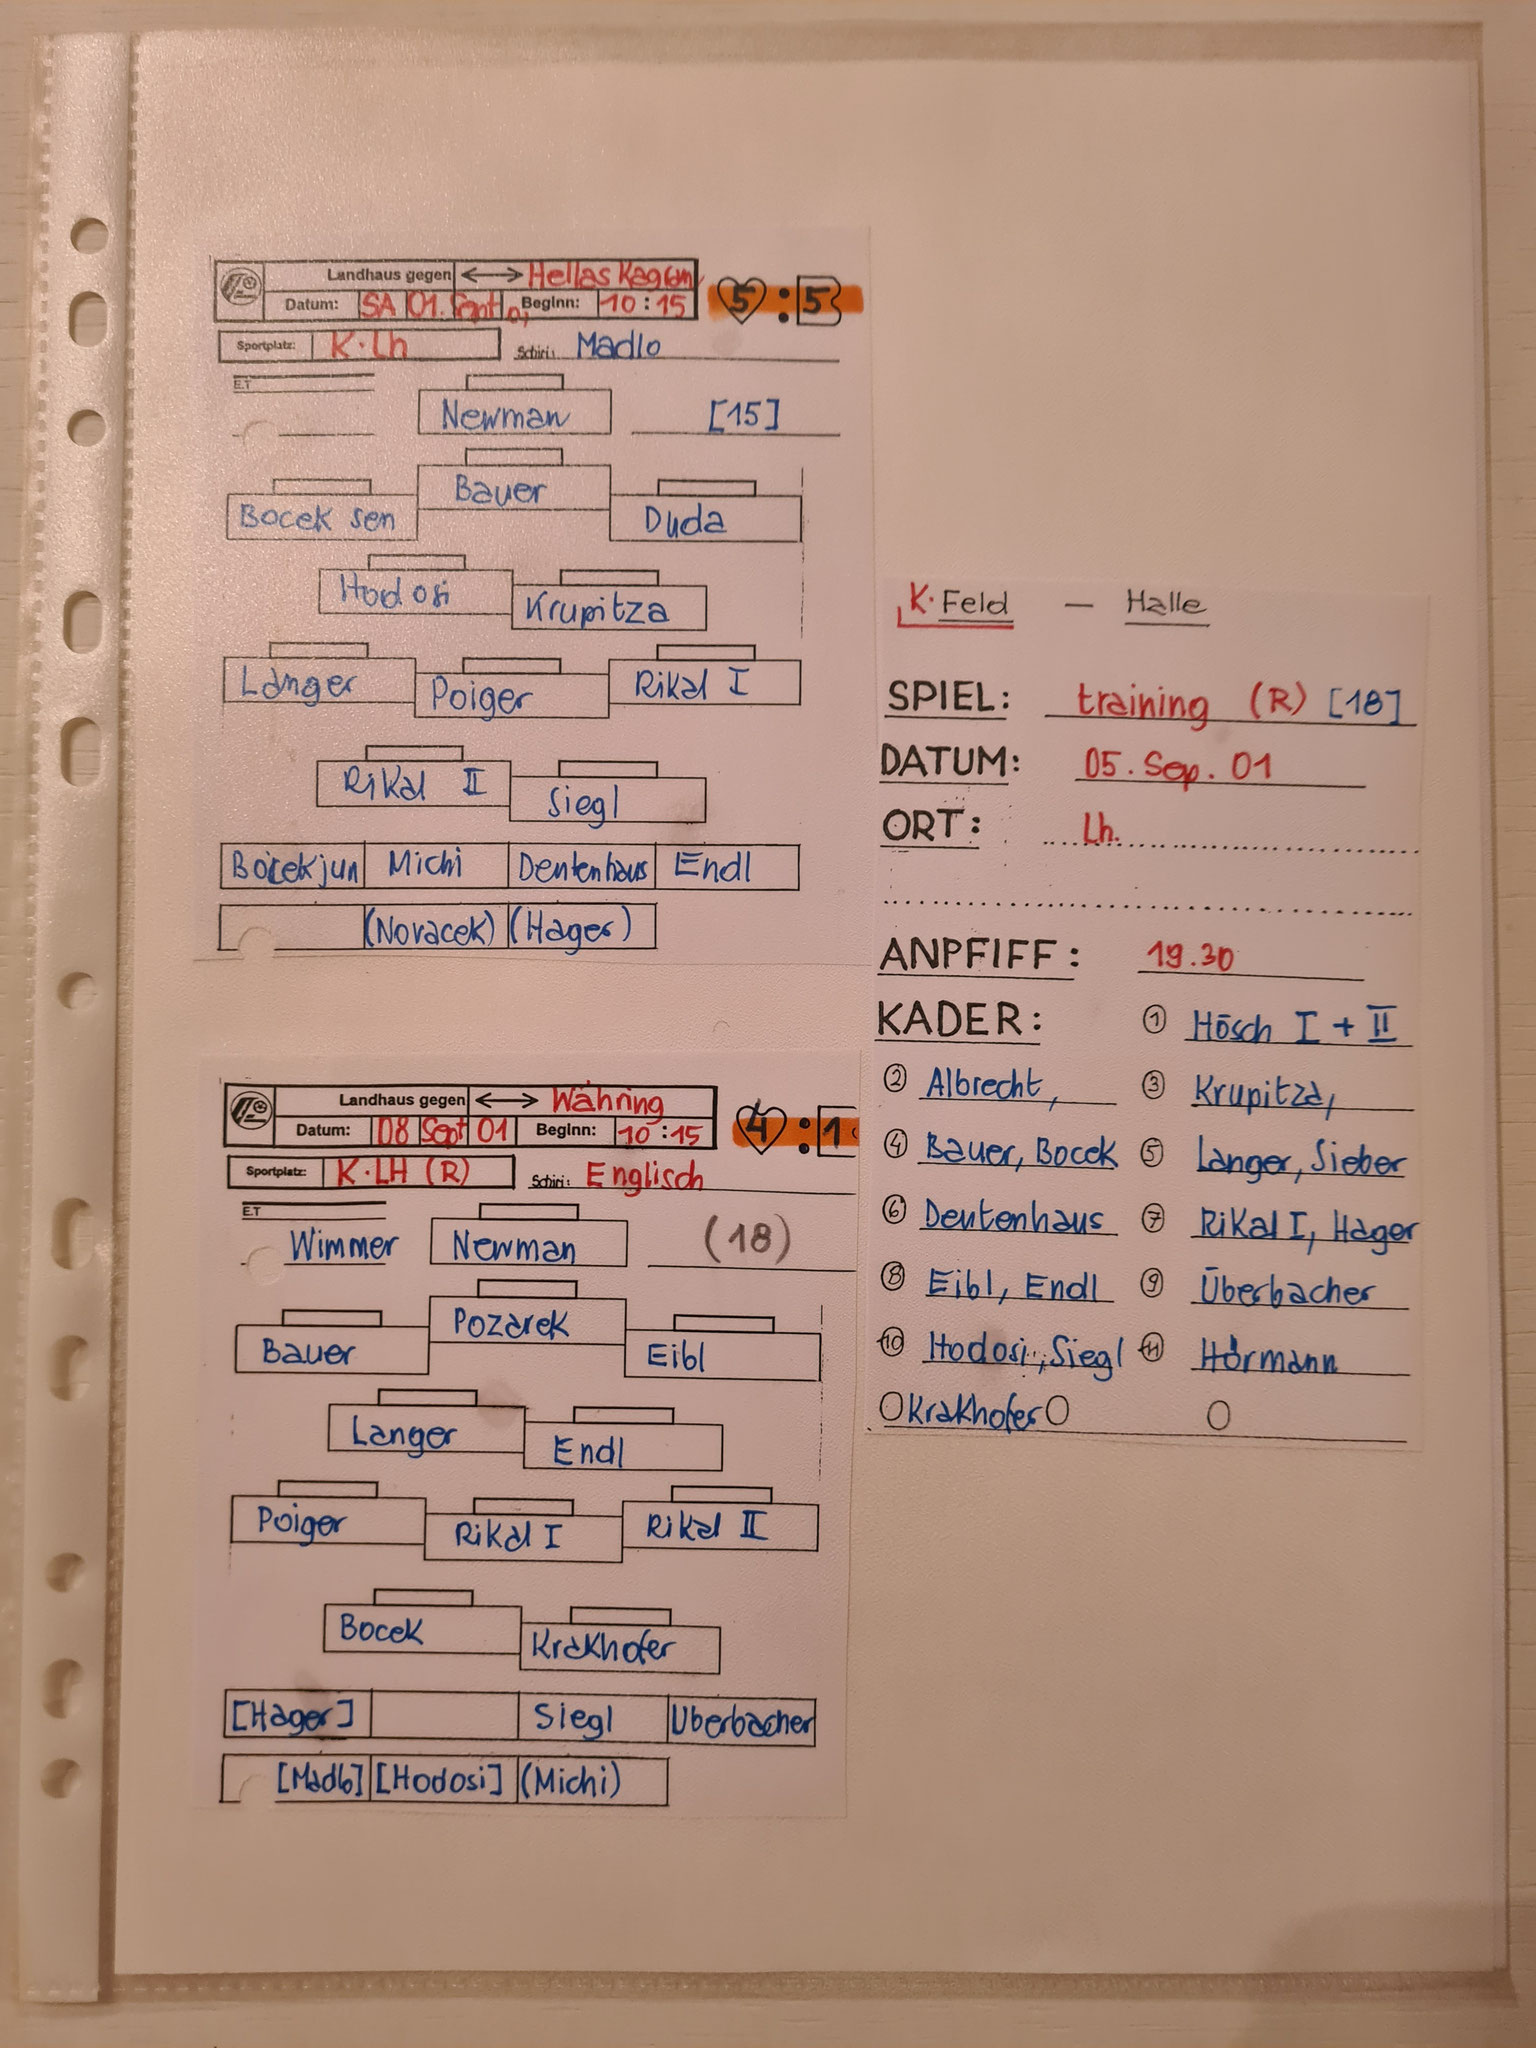 Landhaus gegen ⟷ Hellas Kagran 5:5
Datum: SA 01. Sept 01 Beginn: 10:15
Sportplatz: K.Lh Schiri: Madlo
E.T
Newman [15]
Bauer
Bocek sen Duda
Hodosi Krupitza
Langer Poiger Rikal I
Rikal II Siegl
Bocek jun Michi Dentenhaus Endl
(Novacek) (Hager)
Landhaus gegen ⟷ Währing 4:1
Datum: 08 Sept 01 Beginn: 10:15
Sportplatz: K.LH (R) Schiri: Englisch
E.T
Wimmer Newman (18)
Pozarek
Bauer Eibl
Langer Endl
Poiger Rikal I Rikal II
Bocek Krakhofer
[Hager] Siegl Überbacher
[Madlo] [Hodosi] (Michi)
K.Feld — Halle
SPIEL: training (R) [18]
DATUM: 05. Sep. 01
ORT: Lh.
ANPFIFF: 19.30
KADER: ① Hösch I + II
② Albrecht, ③ Krupitza,
④ Bauer, Bocek ⑤ Langer, Sieber
⑥ Dentenhaus ⑦ Rikal I, Hager
⑧ Eibl, Endl ⑨ Überbacher
⑩ Hodosi, Siegl ⑪ Hörmann
Krakhofer